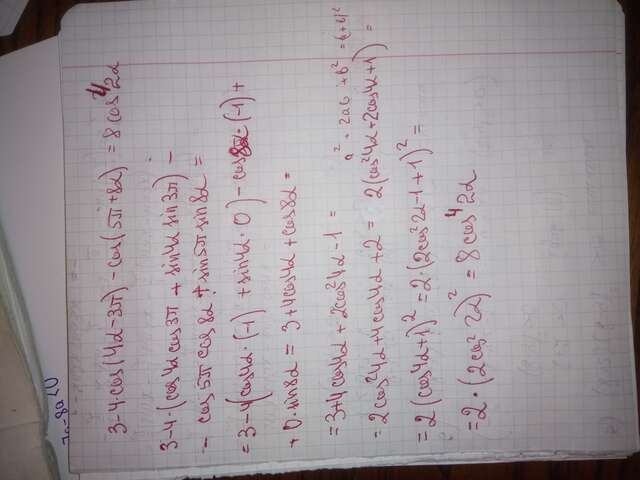 3-4·cos(4α-3π)-cos(5π+8α)=8cos⁴2α
3-4·(cos4α cos3π + sin4α sin3π)-
- cos5π cos8α + sin5π sin8α =
= 3-4(cos4α·(-1) + sin4α·0) - cos8α·(-1)+
+ 0·sin8α = 3+4cos4α+cos8α =
= 3+4cos4α + 2cos²4α-1 =
a²+2ab+b²=(a+b)²
= 2cos²4α+4cos4α+2 = 2(cos²4α+2cos4α+1) =
= 2(cos4α+1)² = 2·(2cos²2α-1+1)² =
= 2·(2cos²2α)² = 8cos⁴2α